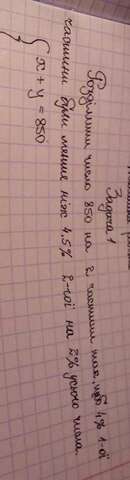 Задача 1
Розділити число 850 на 2 частини так, щоб 4% 1-ої
частини були менше ніж 4.5% 2-гої на 2% усього числа.
{ x + y = 850